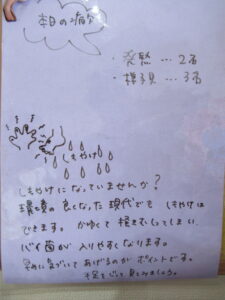 本日の病欠
・発熱 … 2名
・様子見 … 3名
しもやけ
しもやけになっていませんか?
環境の良くなった現代でも しもやけは
できます。かゆくて
バイ菌が入りやすくなります。
早めに気づいてあげるのがポイントです。
見てみましょう。